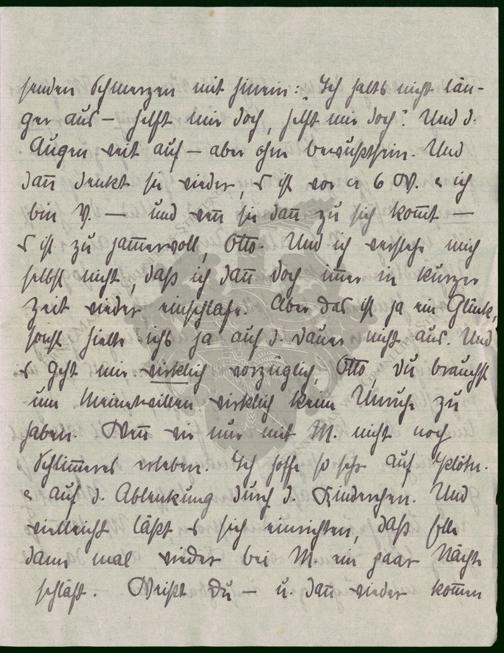 senden Schmerzen mit hinein: „Ich halts nicht län-
ger aus — helft mir doch, helft mir doch". Und d.
Augen weit auf — aber ohne bewußtsein. Und
dañ denkt sie wieder, es ist vor 6 W. & ich
bin V. — und weñ sie dañ zu sich kom̄t —
es ist zu jam̄ervoll, Otto. Und ich verstehe mich
selbst nicht, daß ich dañ doch im̄er in kurzer
Zeit wieder einschlafe. Aber das ist ja ein Glück,
sonst hielte ichs ja auf d. dauer nicht aus. Und
es geht mir wirklich vorzüglich Otto, du brauchst
um meinetwillen wirklich keine Unruhe zu
haben. Weñ wir nur mit M. nicht noch
Schlimmeres erleben. Ich hoffe so sehr auf
& auf d. Ablenkung durch d. Kinderchen. Und
vielleicht läßt es sich einrichten, daß
dann mal wieder bei M. ein paar Nächte
schläft. Weißt du — u. dañ wieder kom̄en